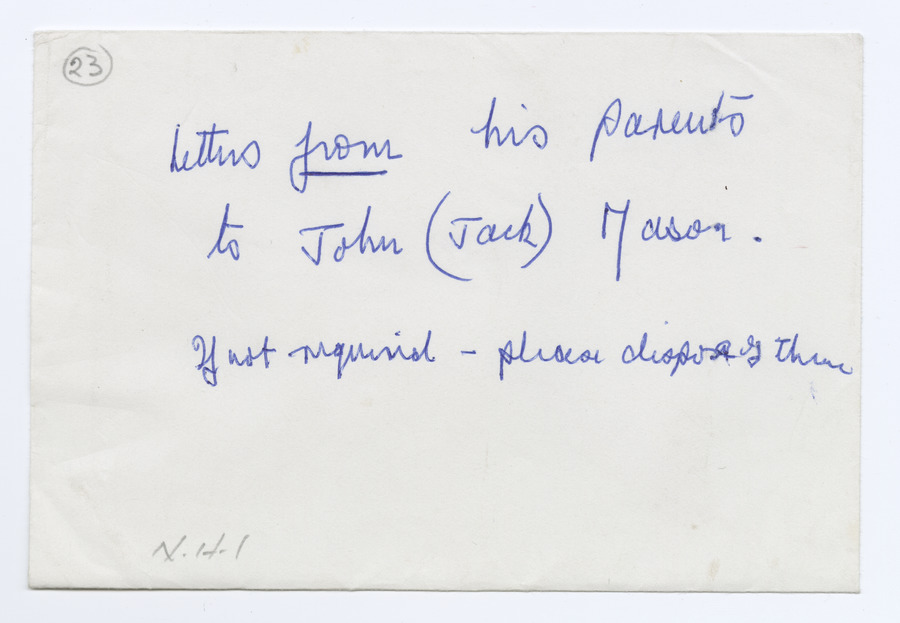 23
Letters from his parents
to John (Jack) Mason.
If not required - please dispose of them
N.H.I